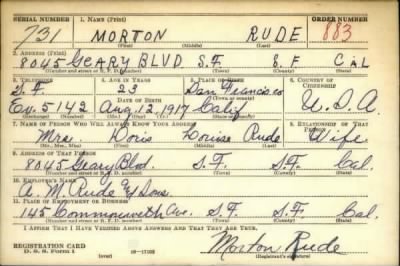 SERIAL NUMBER 1. NAME (Print) ORDER NUMBER
731 MORTON RUDE 883
(First) (Middle) (Last)
2. ADDRESS (Print)
8045 GEARY BLVD S.F. S F CAL
(Number and street or R. F. D. number) (Town) (County) (State)
3. TELEPHONE 4. AGE IN YEARS 5. PLACE OF BIRTH 6. COUNTRY OF CITIZENSHIP
S.F. 23 San Francisco
DATE OF BIRTH (Town or county)
Ev. 5142 Aug. 12, 1917 Calif U.S.A
(Exchange) (Number) (Mo.) (Day) (Yr.) (State or country)
7. NAME OF PERSON WHO WILL ALWAYS KNOW YOUR ADDRESS 8. RELATIONSHIP OF THAT PERSON
Mrs. Doris Louise Rude Wife
(Mr., Mrs., Miss) (First) (Middle) (Last)
9. ADDRESS OF THAT PERSON
8045 Geary Blvd. S.F. S.F. Cal.
(Number and street or R. F. D. number) (Town) (County) (State)
10. EMPLOYER'S NAME
A. M. Rude & Sons
11. PLACE OF EMPLOYMENT OR BUSINESS
145 Commonweth Ave. S.F. S.F. Cal.
(Number and street or R. F. D. number) (Town) (County) (State)
I AFFIRM THAT I HAVE VERIFIED ABOVE ANSWERS AND THAT THEY ARE TRUE.
REGISTRATION CARD Morton Rude
D. S. S. Form 1 (over) (Registrant's signature)